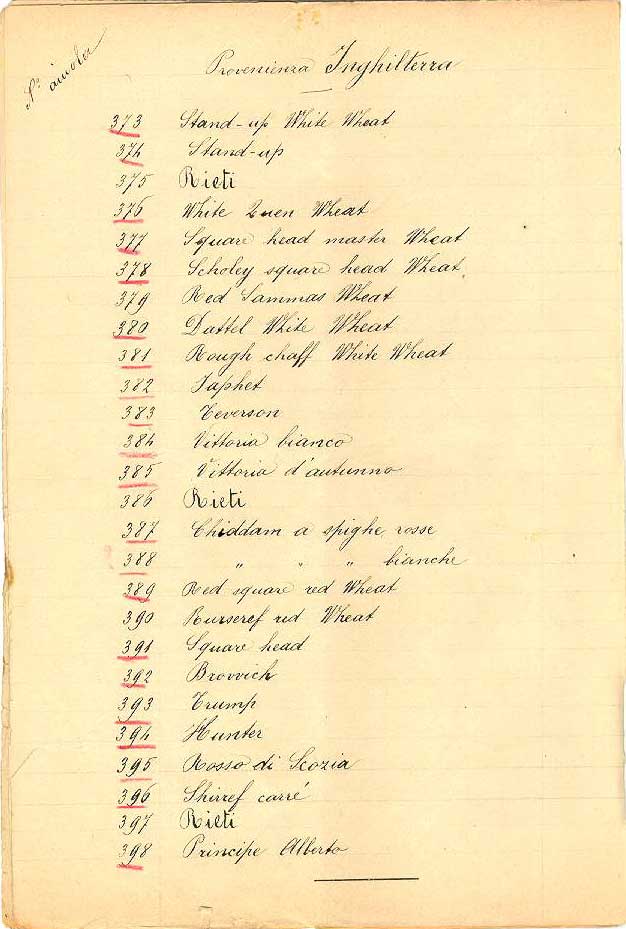 N.° aiuola
Provenienza Inghilterra
373 Stand-up White Wheat
374 Stand-up
375 Rieti
376 White Quen Wheat
377 Square head master Wheat
378 Scholey square head Wheat
379 Red Sammas Wheat
380 Dattel White Wheat
381 Rough chaff White Wheat
382 Japhet
383 Teverson
384 Vittoria bianco
385 Vittoria d'autunno
386 Rieti
387 Chiddam a spighe rosse
388 " " " bianche
389 Red square red Wheat
390 red Wheat
391 Square head
392 Browich
393 Trump
394 Hunter
395 Rosso di Scozia
396 Shirref carré
397 Rieti
398 Principe Alberto